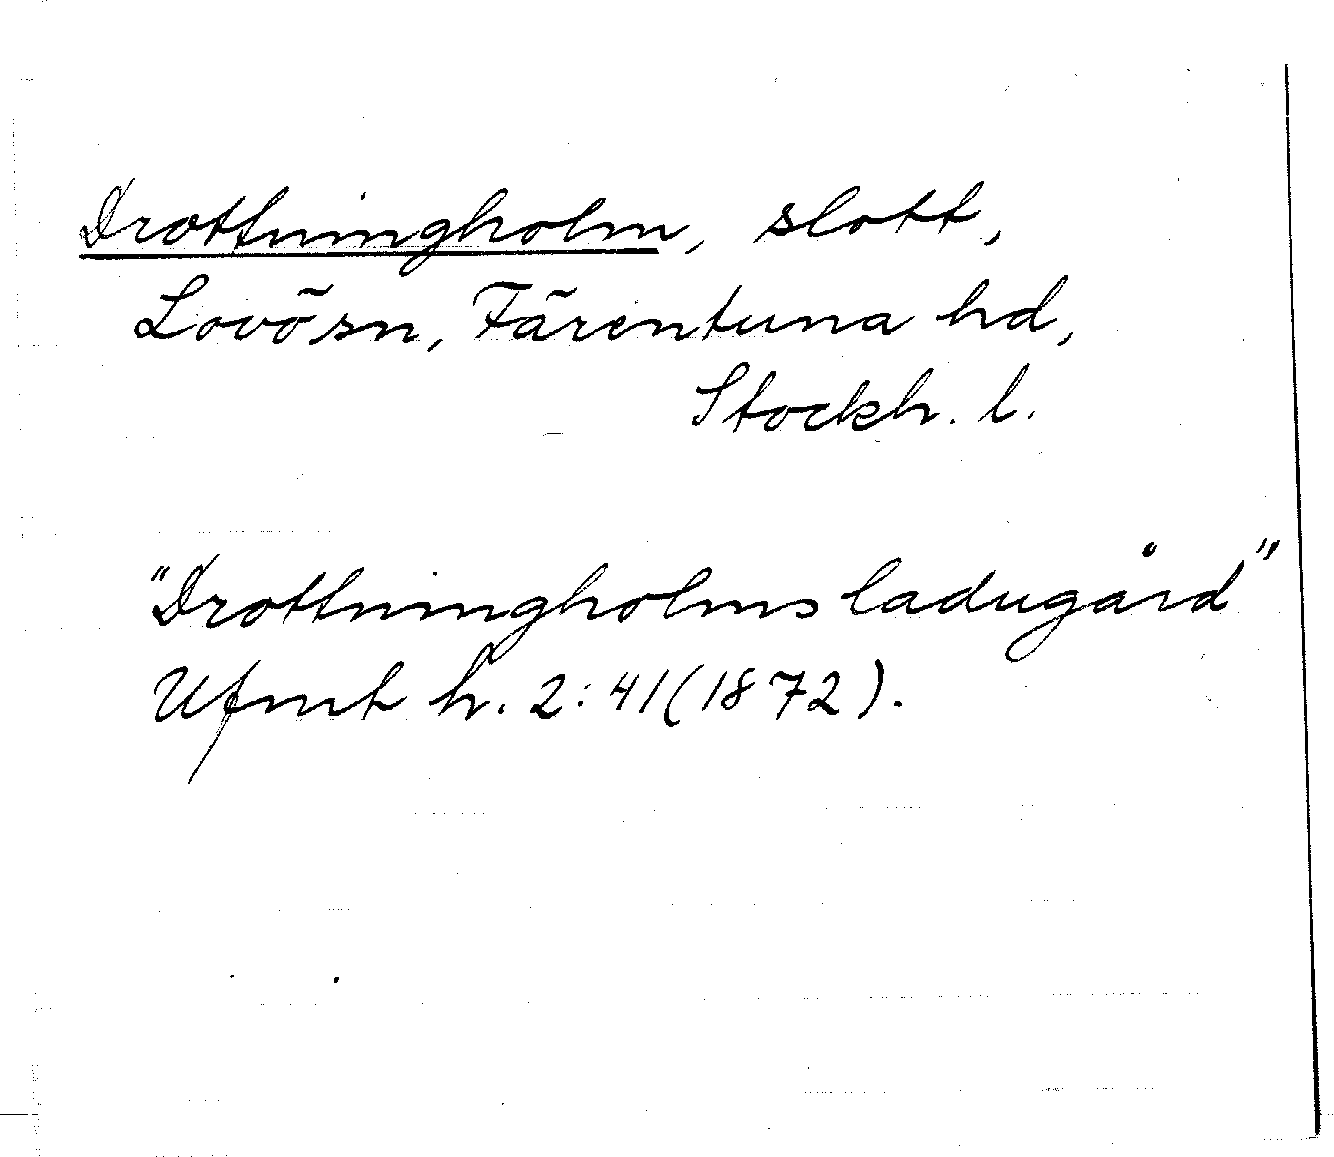 Drottningholm, slott,
Lovö sn, Färentuna hd,
Stockh. l.
"Drottningholms ladugård"
Ufmt h. 2:41(1872).